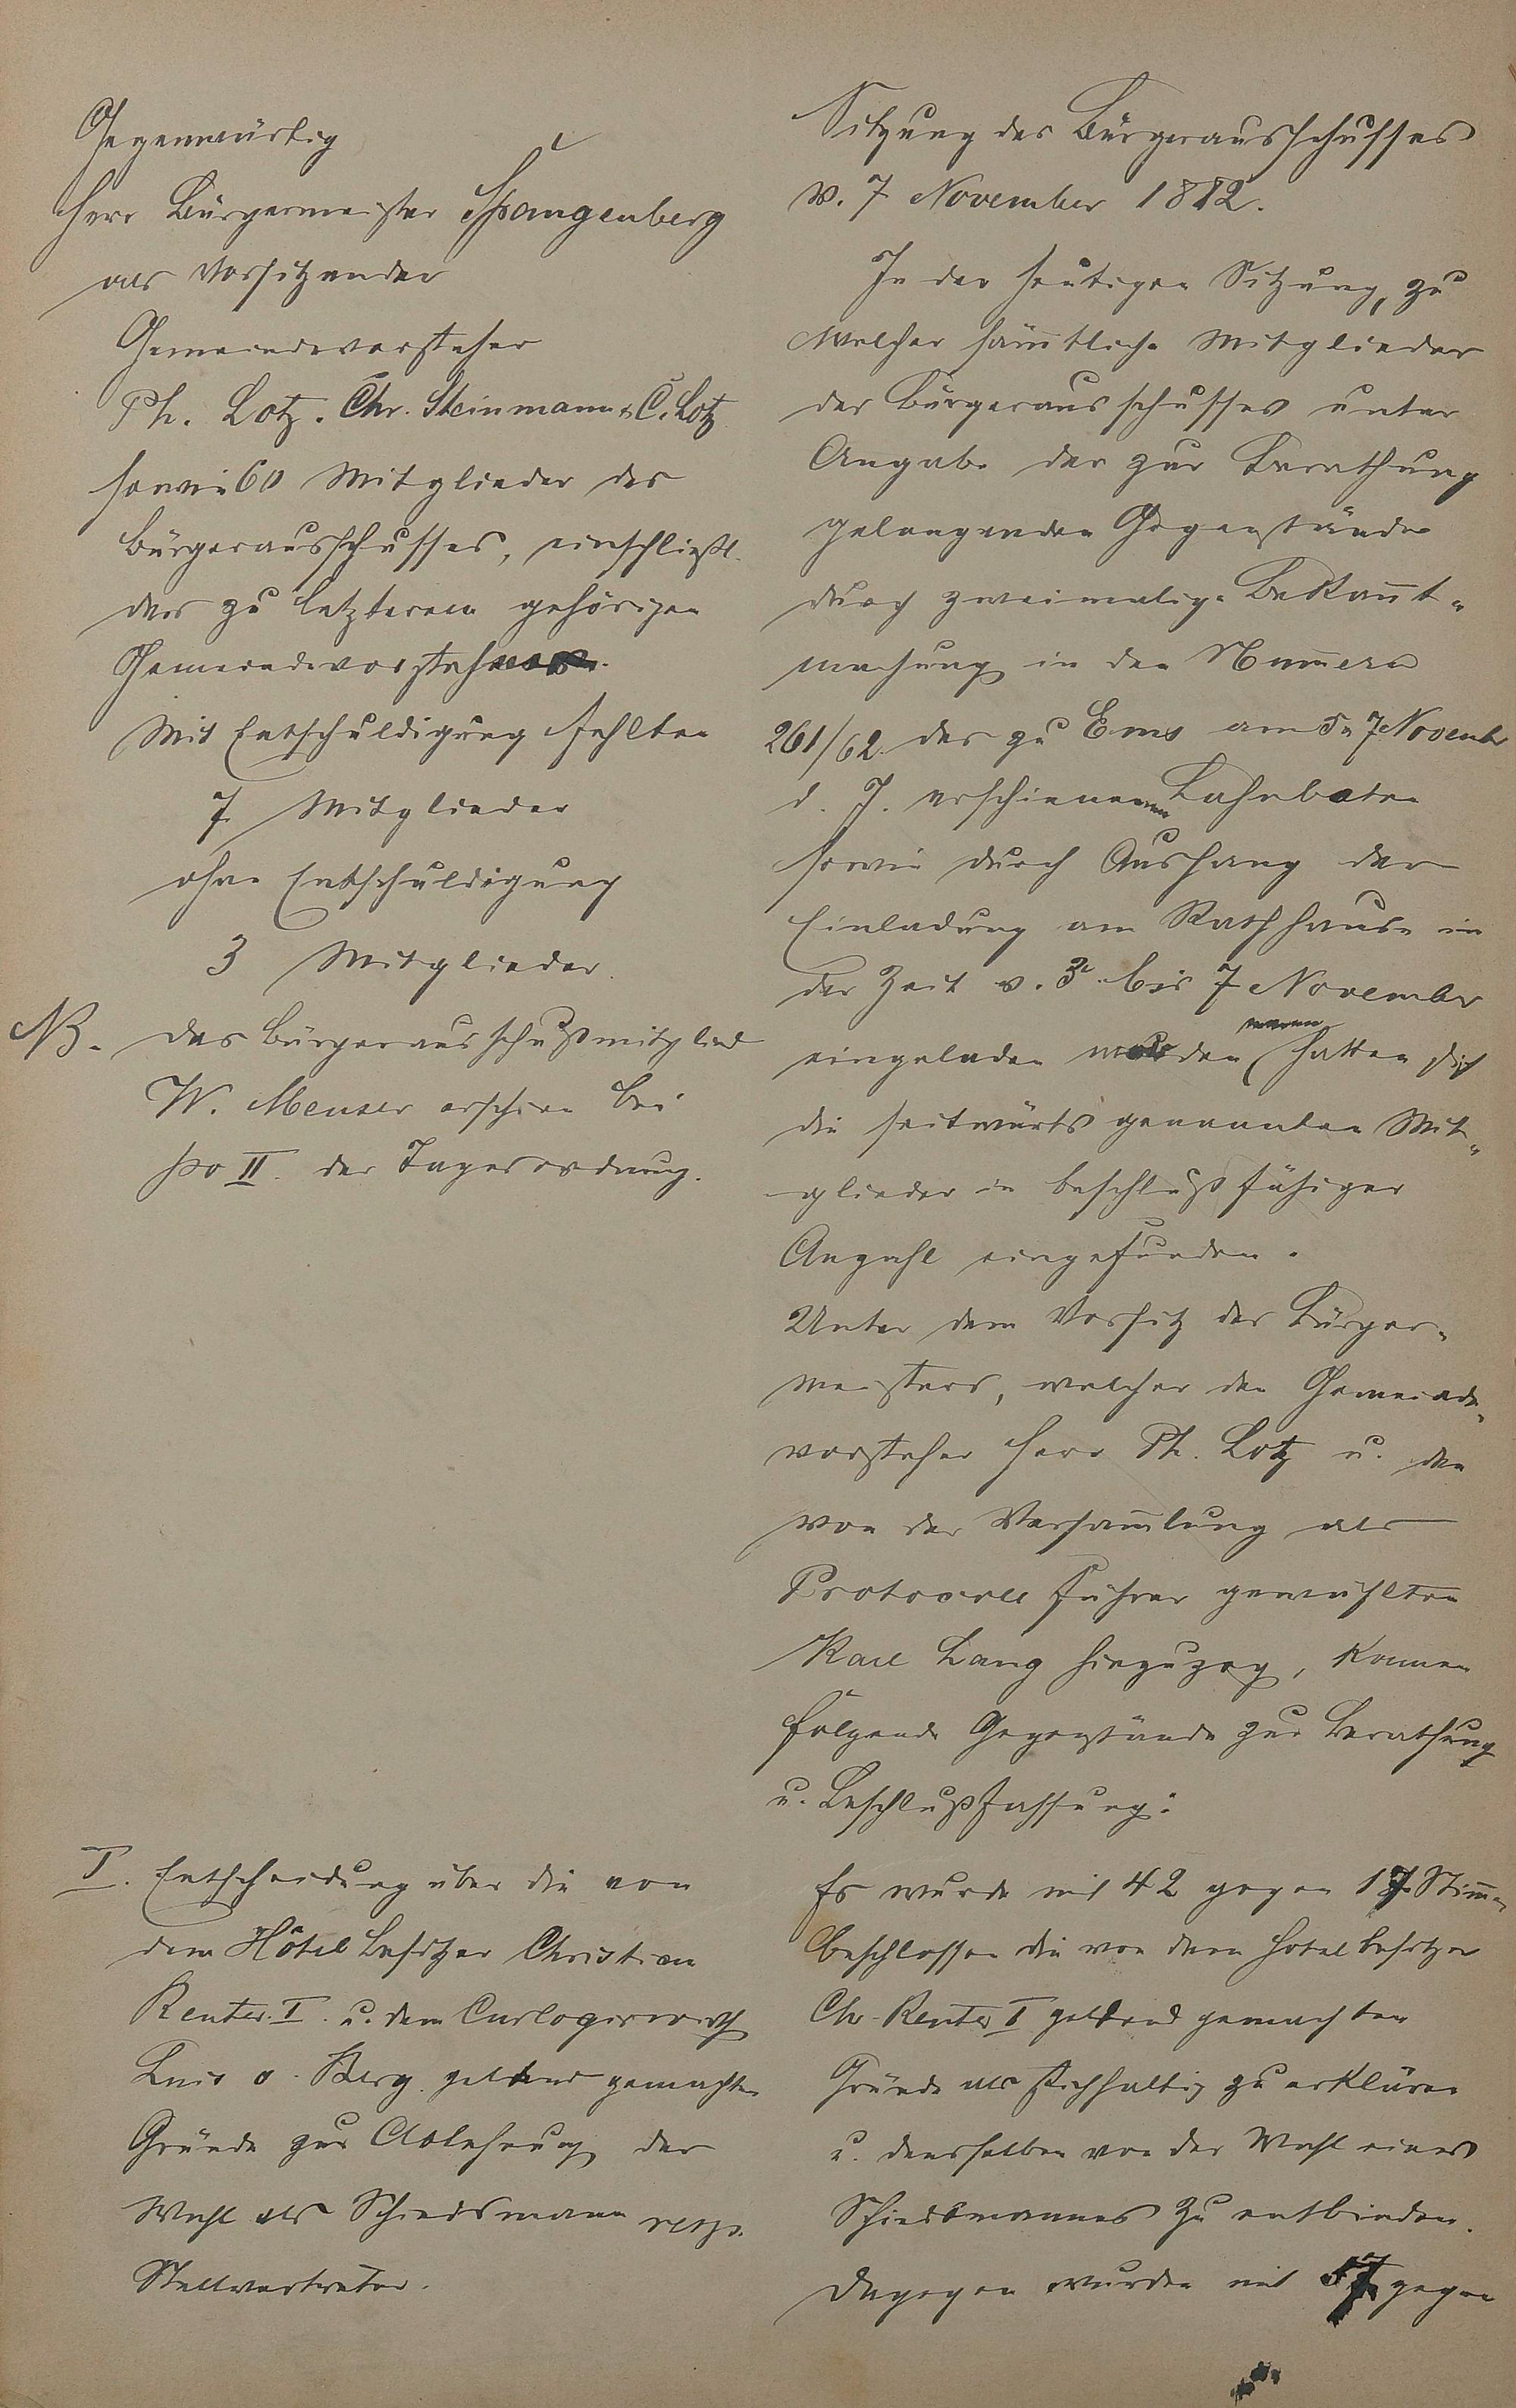 Gegenwärtig
Herr Bürgermeister Spangenberg
als Vorsitzender
Gemeindevorsteher
Ph. Lotz. Chr. Steinmann & C. Lotz
sowie 60 Mitglieder des
Bürgerausschusses, einschließl.
der zu letzterem gehörigen
Gemeindevorsteher
Mit Entschuldigung fehlten
7 Mitglieder
ohne Entschuldigung
3 Mitglieder.
NB. Das Bürgerausschußmitglied
W. Meuser erschien bei
po II. der Tagesordnung.
I. Entscheidung über die von
dem Hôtel Besitzer Christian
Reuter I. u. dem Curlogirwirth
Berg geltend gemachten
Gründe zur Ablehnung der
Wahl als Schiedsmann resp.
Stellvertreter.
Sitzung des Bürgerausschusses
v. 7 November 1882.
In der heutigen Sitzung, zu
welcher sämtliche Mitglieder
des Bürgerausschusses unter
Angabe der zur Berathung
gelangenden Gegenstände
durch zweimalige Bekannt-
machung in den Numern
261/62 des zu Ems am 5 u 7 Novembr
d. J. erschienenen Lahnboten
sowie durch Aushang der
Einladung am Rathhause in
der Zeit v. 3 bis 7 November
eingeladen worden waren, hatten sich
die seitwärts genannten Mit-
glieder in beschlußfähiger
Anzahl eingefunden.
Unter dem Vorsitz des Bürger-
meisters, welcher den Gemeinde-
vorsteher Herr Ph. Lotz u. den
von der Versamlung als
Protocoll führer gewählten
Karl Lang hinzuzog, kamen
folgende Gegenstände zur Berathung
u. Beschlußfassung:
Es wurde mit 42 gegen 17 Stimen
beschlossen die von dem Hotelbesitzer
Chr. Reuter I geltend gemachten
Gründe als stichhaltig zu erklären
u. denselben von der Wahl eines
Schiedsmannes zu entbinden.
Dagegen wurden mit 57 gegen